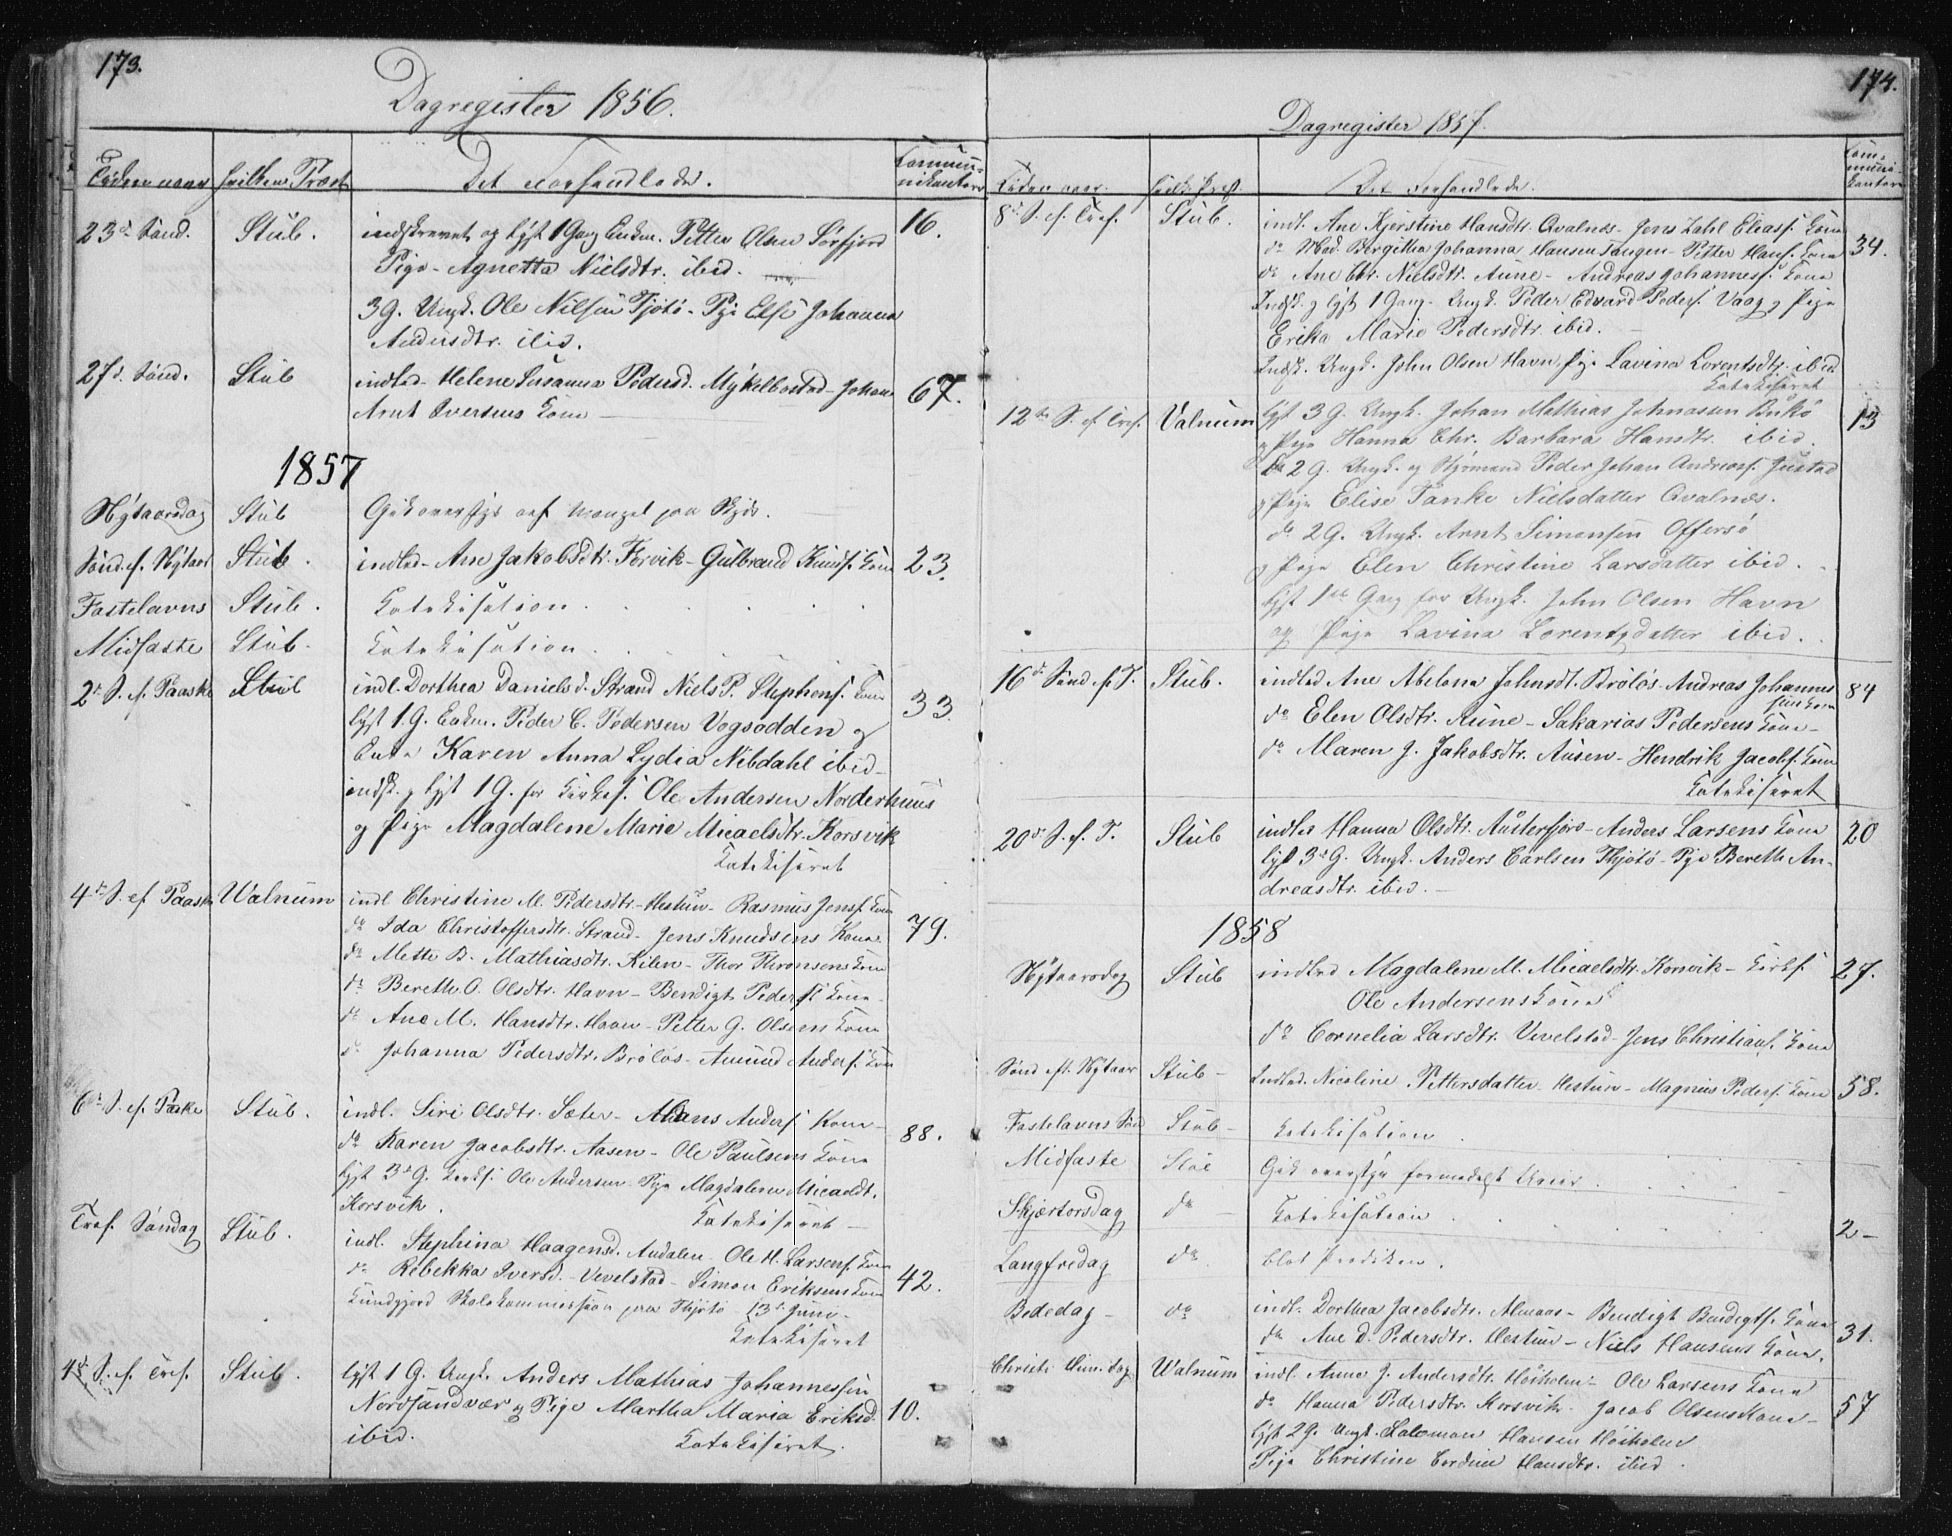 173.
Dagregister 1856.
Tiden naar hvilken Præst Det Forhandlede. Communikantere
23de Sønd. Stub. indskrevet og lyst 1 Gang Enkm. Petter Olsen Sørfjord 16.
Pige Agnetta Nielsdtr. ibid.
3 G. Ungk. Ole Nilsen Tjøtø - Pge Else Johanna
Andersdtr. ibid.
27d Sønd. Stub indled. Helene Susanna Pedersd. Mykelbostad - Johan 67.
Arnt Iversens Kone
1857
Nytaarsdag Stub Gik overstyr af Mangel paa Skyds.
Sønd. ef. Nytaar Stub. indled - Ane Jakobsdtr. Forvik - Gulbrand Knuds. Kone 23.
Fastelavns Stub. Katekisation
Midfaste Stub. Katekisation
2d S. ef. Paaske Stub indl. Dorthea Danielsd. Strand Niels P. Stephens. Kone 33.
lyst 1 G. Enkm. Peder C. Pedersen Vogsodden og
Enke Karen Anna Lydia Nibdahl ibid.
indsk. og lyst 1 G. for Kirkes. Ole Andersen Norderhuus
og Pige Magdalene Marie Micaelsdtr. Korsvik
Katekiseret
4de S. ef Paaske Walnum indl Christine M. Pedersdtr. Hestun - Rasmus Jens. Kone 79.
do Ida Christoffersdtr. Strand - Jens Knudsens Kone
do Mette B. Mathiasdtr. Kilen - Thor Thronsens Kone
do Bereth O. Olsdtr. Havn - Bendigt Peders. Kone
do Ane M. Hansdtr. Havn - Petter G. Olsens Kone
do Johanna Pedersdtr. Brøløs - Amund Anders. Kone
6te S. ef. Paske Stub. indl. Siri Olsdtr. Sæter - Mons Anders. Kone 88.
do Karen Jacobsdtr. Aasen - Ole Paulsens Kone
lyst 3de G. Kirks. Ole Andersen - Pige Magdalene Micaelsdt.
Korsvik. Katekiseret
Tref. Søndag Stub. indl. Stephina Haagensd. Andalen - Ole H. Larsens. Kone 42.
do Rebekka Iversd. Vevelstad - Simon Eriksens Kone
Kundgjord Skolekommission paa Thjøtø 13d Juni
Katekiseret
4d S. ef. Tref. Stub. lyst 1 G. Ungk. Anders Mathias Johannessen 10.
Nordsandvær og Pige Martha Maria Eriksd.
ibid. Katekiseret.
174.
Dagregister 1857.
Tiden naar. hvilk. Præst. Det Forhandlede. Communikantere
8d S. ef. Tref. Stub. indl. Ane Kjerstine Hansdtr. Qvalnes - Jens Zahl Elias. Kone 34.
do Mad. Bergitha Johanna Hansen Tangen - Petter Hans. Kone
do Ane Chr. Nielsdtr. Aune - Andreas Johannes. Kone
Indsk. og lyst 1 Gang - Ungk. Peder Edvard Peders. Vaag og Pige
Erika Marie Pedersdtr. ibid.
Indsk. Ungk. John Olsen Havn Pige Lavina Lorentsdtr. ibid
Katekiseret
12te S. ef Tref. Valnum lyst 3 G. Ungk. Johan Mathias Johnassen Bukø 13
og Pige Hanna Chr. Barbara Hansdtr. ibid.
do 2 G. Ungk. og Styrmand Peder Johan Andreas. Justad
og Pige Elise Tanke Nielsdatter Qvalnes.
do 2 G. Ungk. Arnt Simonsen Offersø
og Pige Elen Christine Larsdatter ibid.
lyst 1ste Gang for Ungk. John Olsen Havn
og Pige Lavina Lorentzdatter ibid.
16d Sønd. ef. T. Stub. indled Ane Abelona Johnsdt. Brøløs - Andreas Johannes 84
sens Kone
do Elen Olsdtr. Aune - Sakarias Pedersens Kone
do Maren J. Jakobsdtr. Ausen - Hendrik Jacobs. Kone
Katekiseret
20d S. ef. T. Stub indled Hanna Olsdtr. Austerfjord - Anders Larsens Kone 20
lyst 3d G. Ungk. Anders Carlsen Thjøtø - Pge Bereth An-
dreasdtr. ibid.
1858
Nytaarsdag Stub indled Magdalene M. Micaelsdtr. Korsvik - Kirks. 27.
Ole Andersens Kone
do Cornelia Larsdtr. Vevelstad - Jens Christians. Kone
Sønd eft. Nytaar Stub - Indled. Nicoline Pettersdatter Hestun - Magnus Peders. Kone 58.
Fastelavns Sønd Stub - Katekisation
Midfaste Stub Gik overstyr formedelst Uveir.
Skjærtorsdag do Katekisation 2 -
Langfredag do blot Prædiken.
Bededag - do indl. Dorthea Jacobsdtr. Almaas - Bendigt Bendigts. Kone 31.
do Ane D. Pedersdtr. Hestun - Niels Hansens Kone.
Christi Him. dag Walnum indl. Anne J. Andersdtr. Høiholm - Ole Larsens Kone 57
do Hanna Pedersdtr. Korsvik - Jacob Olsens Kone
lyst 2 G. Ungk. Salomon Hansen Høiholm
Pige Christine Cordine Hansdtr. ibid.